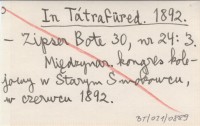 In Tátrafüred. 1892.
- Zipser Bote 30, nr 24: 3.
Międzynar. kongres kole-
jowy w Starym Smokowcu,
w czerwcu 1892.